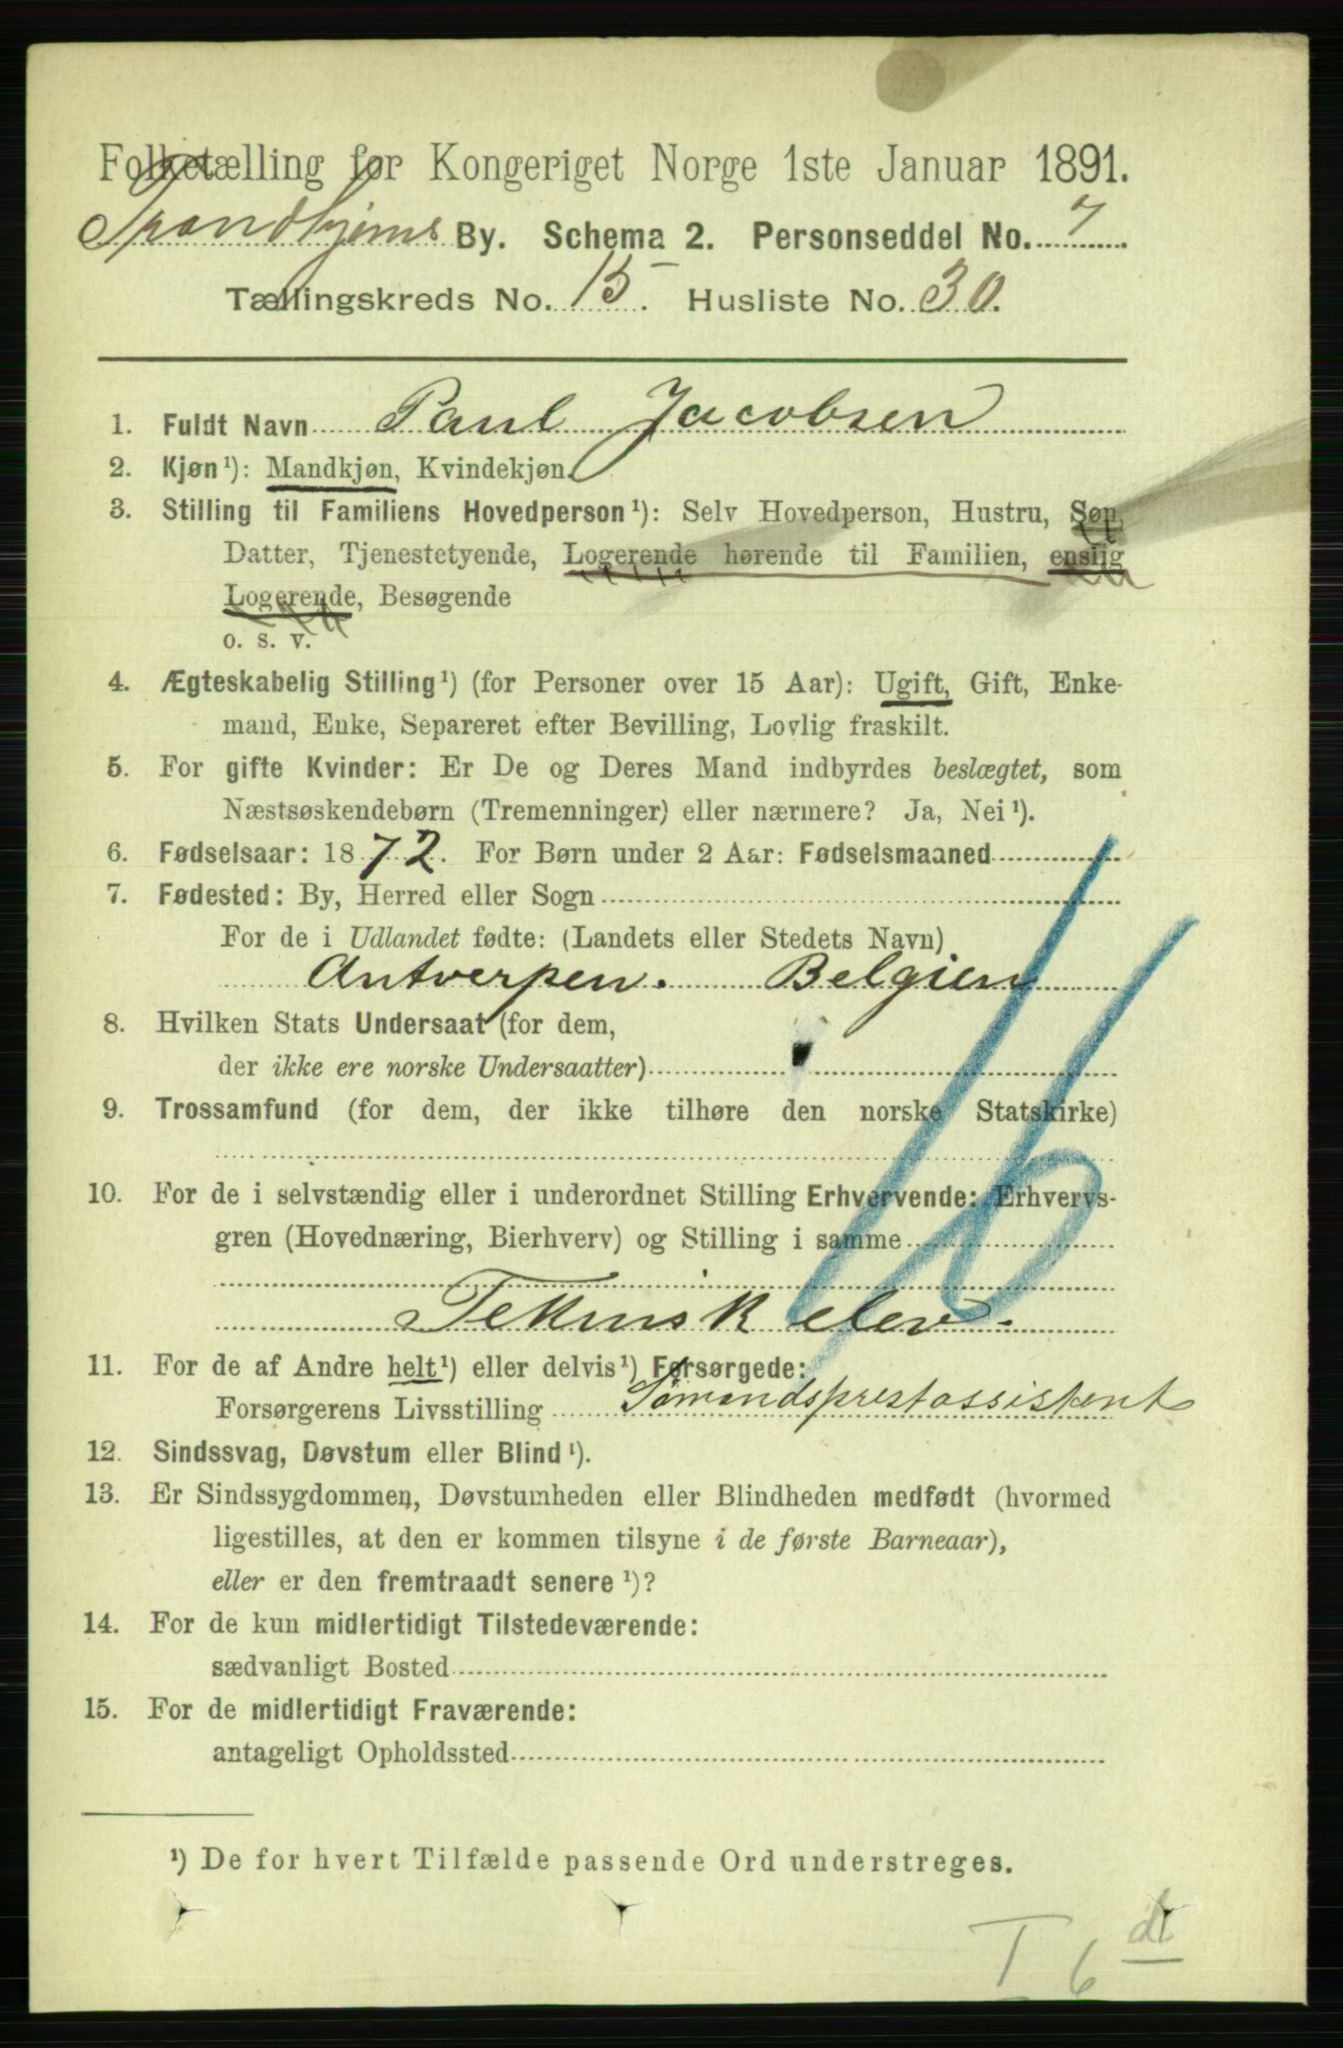 Folketælling for Kongeriget Norge 1ste Januar 1891.
Trondhjems By. Schema 2. Personseddel No. 7
Tællingskreds No. 15. Husliste No. 30.
1. Fuldt Navn Paul Jacobsen
2. Kjøn¹): Mandkjøn, Kvindekjøn.
3. Stilling til Familiens Hovedperson¹): Selv Hovedperson, Hustru, Søn,
Datter, Tjenestetyende, Logerende hørende til Familien, enslig
Logerende, Besøgende
o. s. v.
4. Ægteskabelig Stilling¹) (for Personer over 15 Aar): Ugift, Gift, Enke-
mand, Enke, Separeret efter Bevilling, Lovlig fraskilt.
5. For gifte Kvinder: Er De og Deres Mand indbyrdes beslægtet, som
Næstsøskendebørn (Tremenninger) eller nærmere? Ja, Nei¹).
6. Fødselsaar: 1872. For Børn under 2 Aar: Fødselsmaaned
7. Fødested: By, Herred eller Sogn
For de i Udlandet fødte: (Landets eller Stedets Navn)
Antverpen. Belgien
8. Hvilken Stats Undersaat (for dem,
der ikke ere norske Undersaatter)
9. Trossamfund (for dem, der ikke tilhøre den norske Statskirke)
10. For de i selvstændig eller i underordnet Stilling Erhvervende: Erhvervs-
gren (Hovednæring, Bierhverv) og Stilling i samme
Teknisk elev.
11. For de af Andre helt¹) eller delvis¹) Forsørgede:
Forsørgerens Livsstilling Sömandsprestassistent
12. Sindssvag, Døvstum eller Blind¹).
13. Er Sindssygdommen, Døvstumheden eller Blindheden medfødt (hvormed
ligestilles, at den er kommen tilsyne i de første Barneaar),
eller er den fremtraadt senere¹)?
14. For de kun midlertidigt Tilstedeværende:
sædvanligt Bosted
15. For de midlertidigt Fraværende:
antageligt Opholdssted
¹) De for hvert Tilfælde passende Ord understreges.
I 6 dt